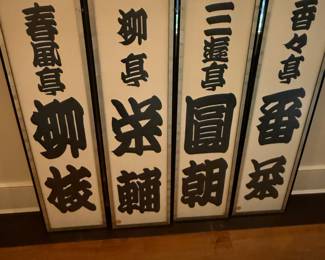 香々亭
三遊亭圓朝
柳亭栄輔
春風亭柳枝